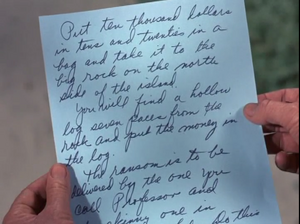 Put ten thousand dollars
in tens and twenties in a
bag and take it to the
big rock on the north
side of the island.
You will find a hollow
log seven paces from the
rock and put the money in
the log.
The ransom is to be
delivered by the one you
call Professor and
skinny one in
do this